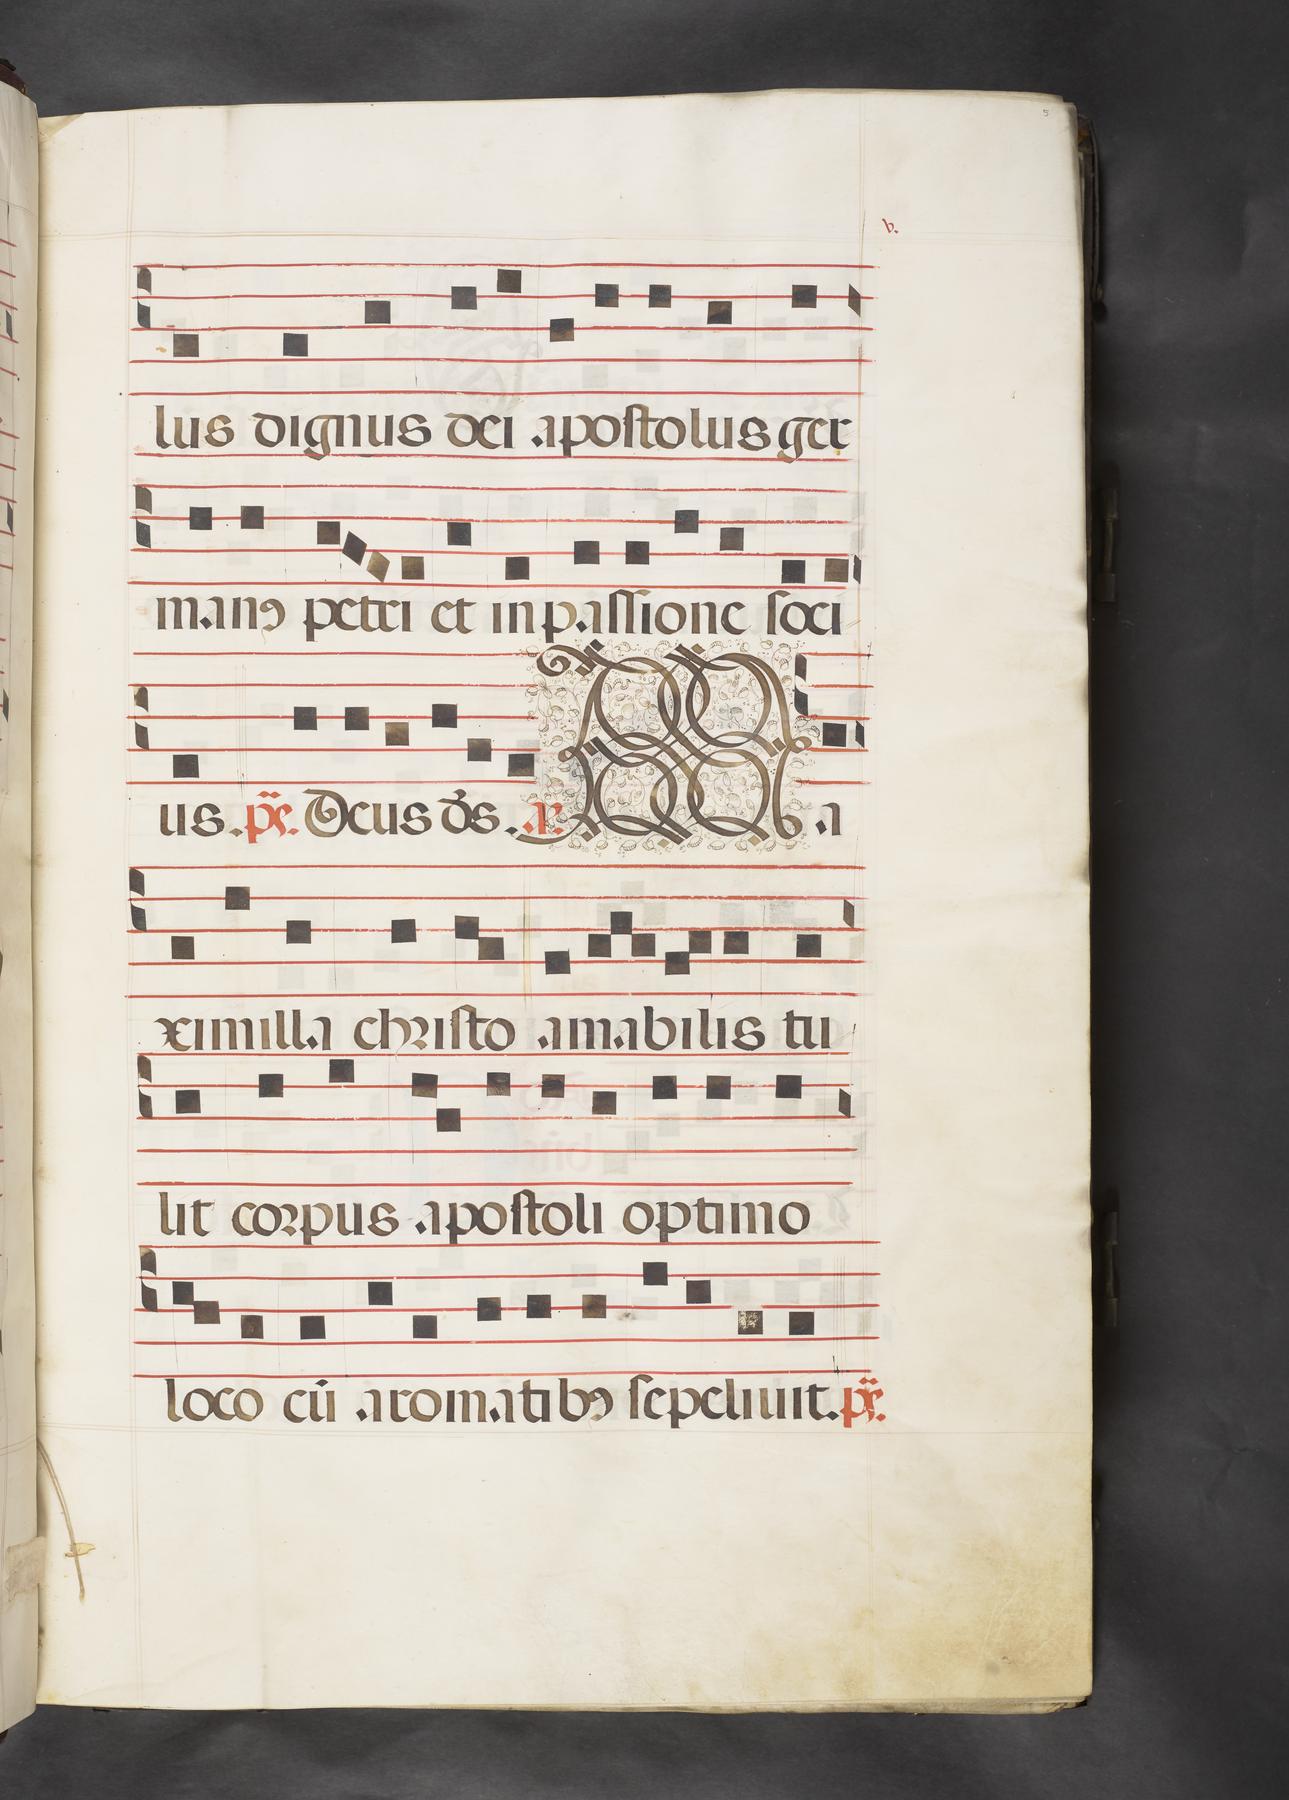 5
v.
lus dignus dei apostolus ger
manꝰ petri et in passione soci
us. ps. Deus ds. a. Ma
ximilla christo amabilis tu
lit corpus apostoli optimo
loco cū aromatibꝰ sepeliuit. ps.